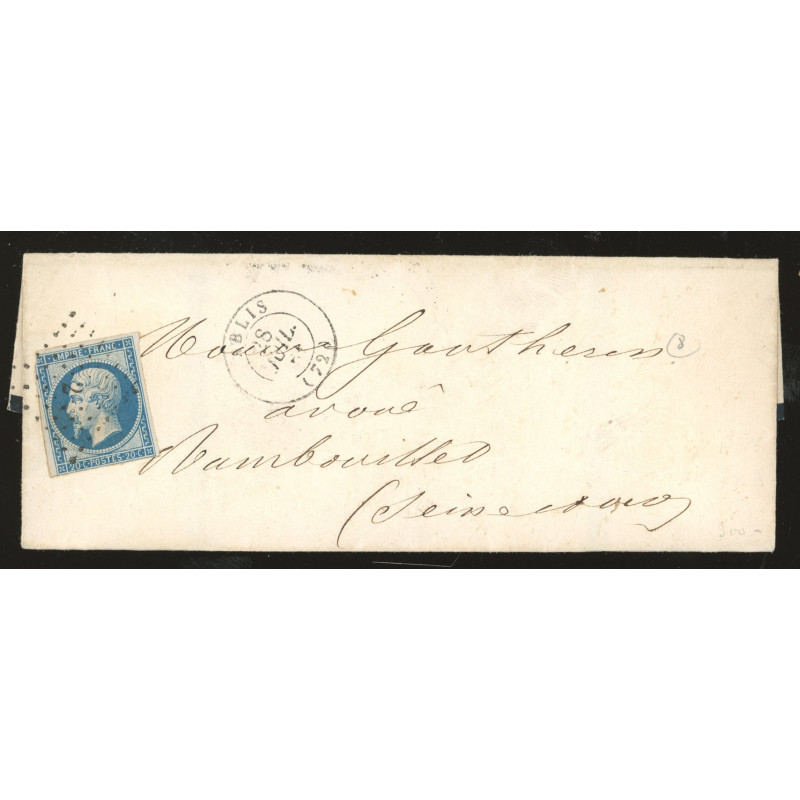 EMPIRE FRANC.
20 C. POSTES 20 C.
BLIS
28
JUIL.
(72)
Gautherin
avoué
Rambouillet
(Seine et oise)
8
300 -